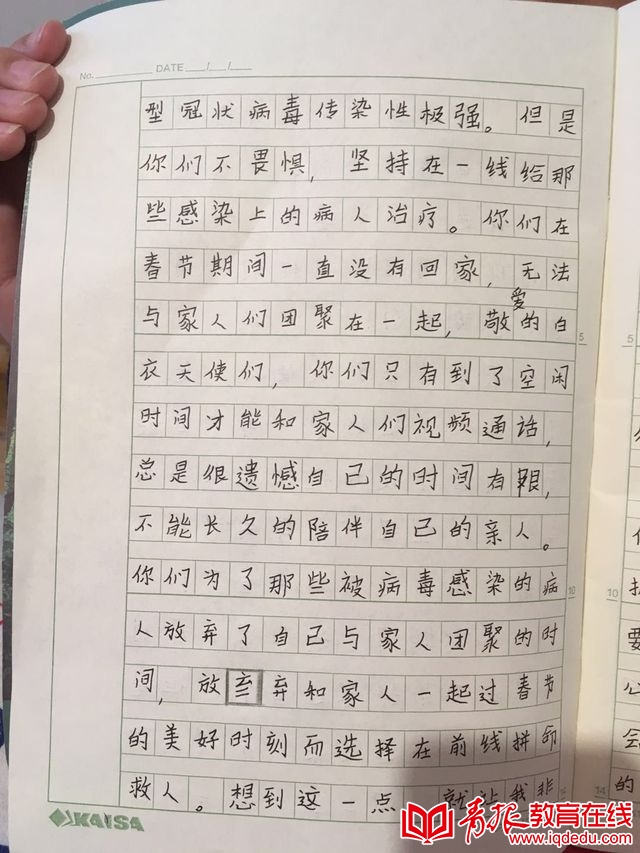 No. DATE / /
型冠状病毒传染性极强。但是
你们不畏惧，坚持在一线给那
些感染上的病人治疗。你们在
春节期间一直没有回家，无法
与家人们团聚在一起，敬爱的白
衣天使们，你们只有到了空闲
时间才能和家人们视频通话，
总是很遗憾自己的时间有限，
不能长久的陪伴自己的亲人。
你们为了那些被病毒感染的病
人放弃了自己与家人团聚的时
间，放弃和家人一起过春节
的美好时刻而选择在前线拼命
救人。想到这一点，就让我非
5
10
KAISA
10
14
要
心
会
的
青报教育在线
www.iqdedu.com